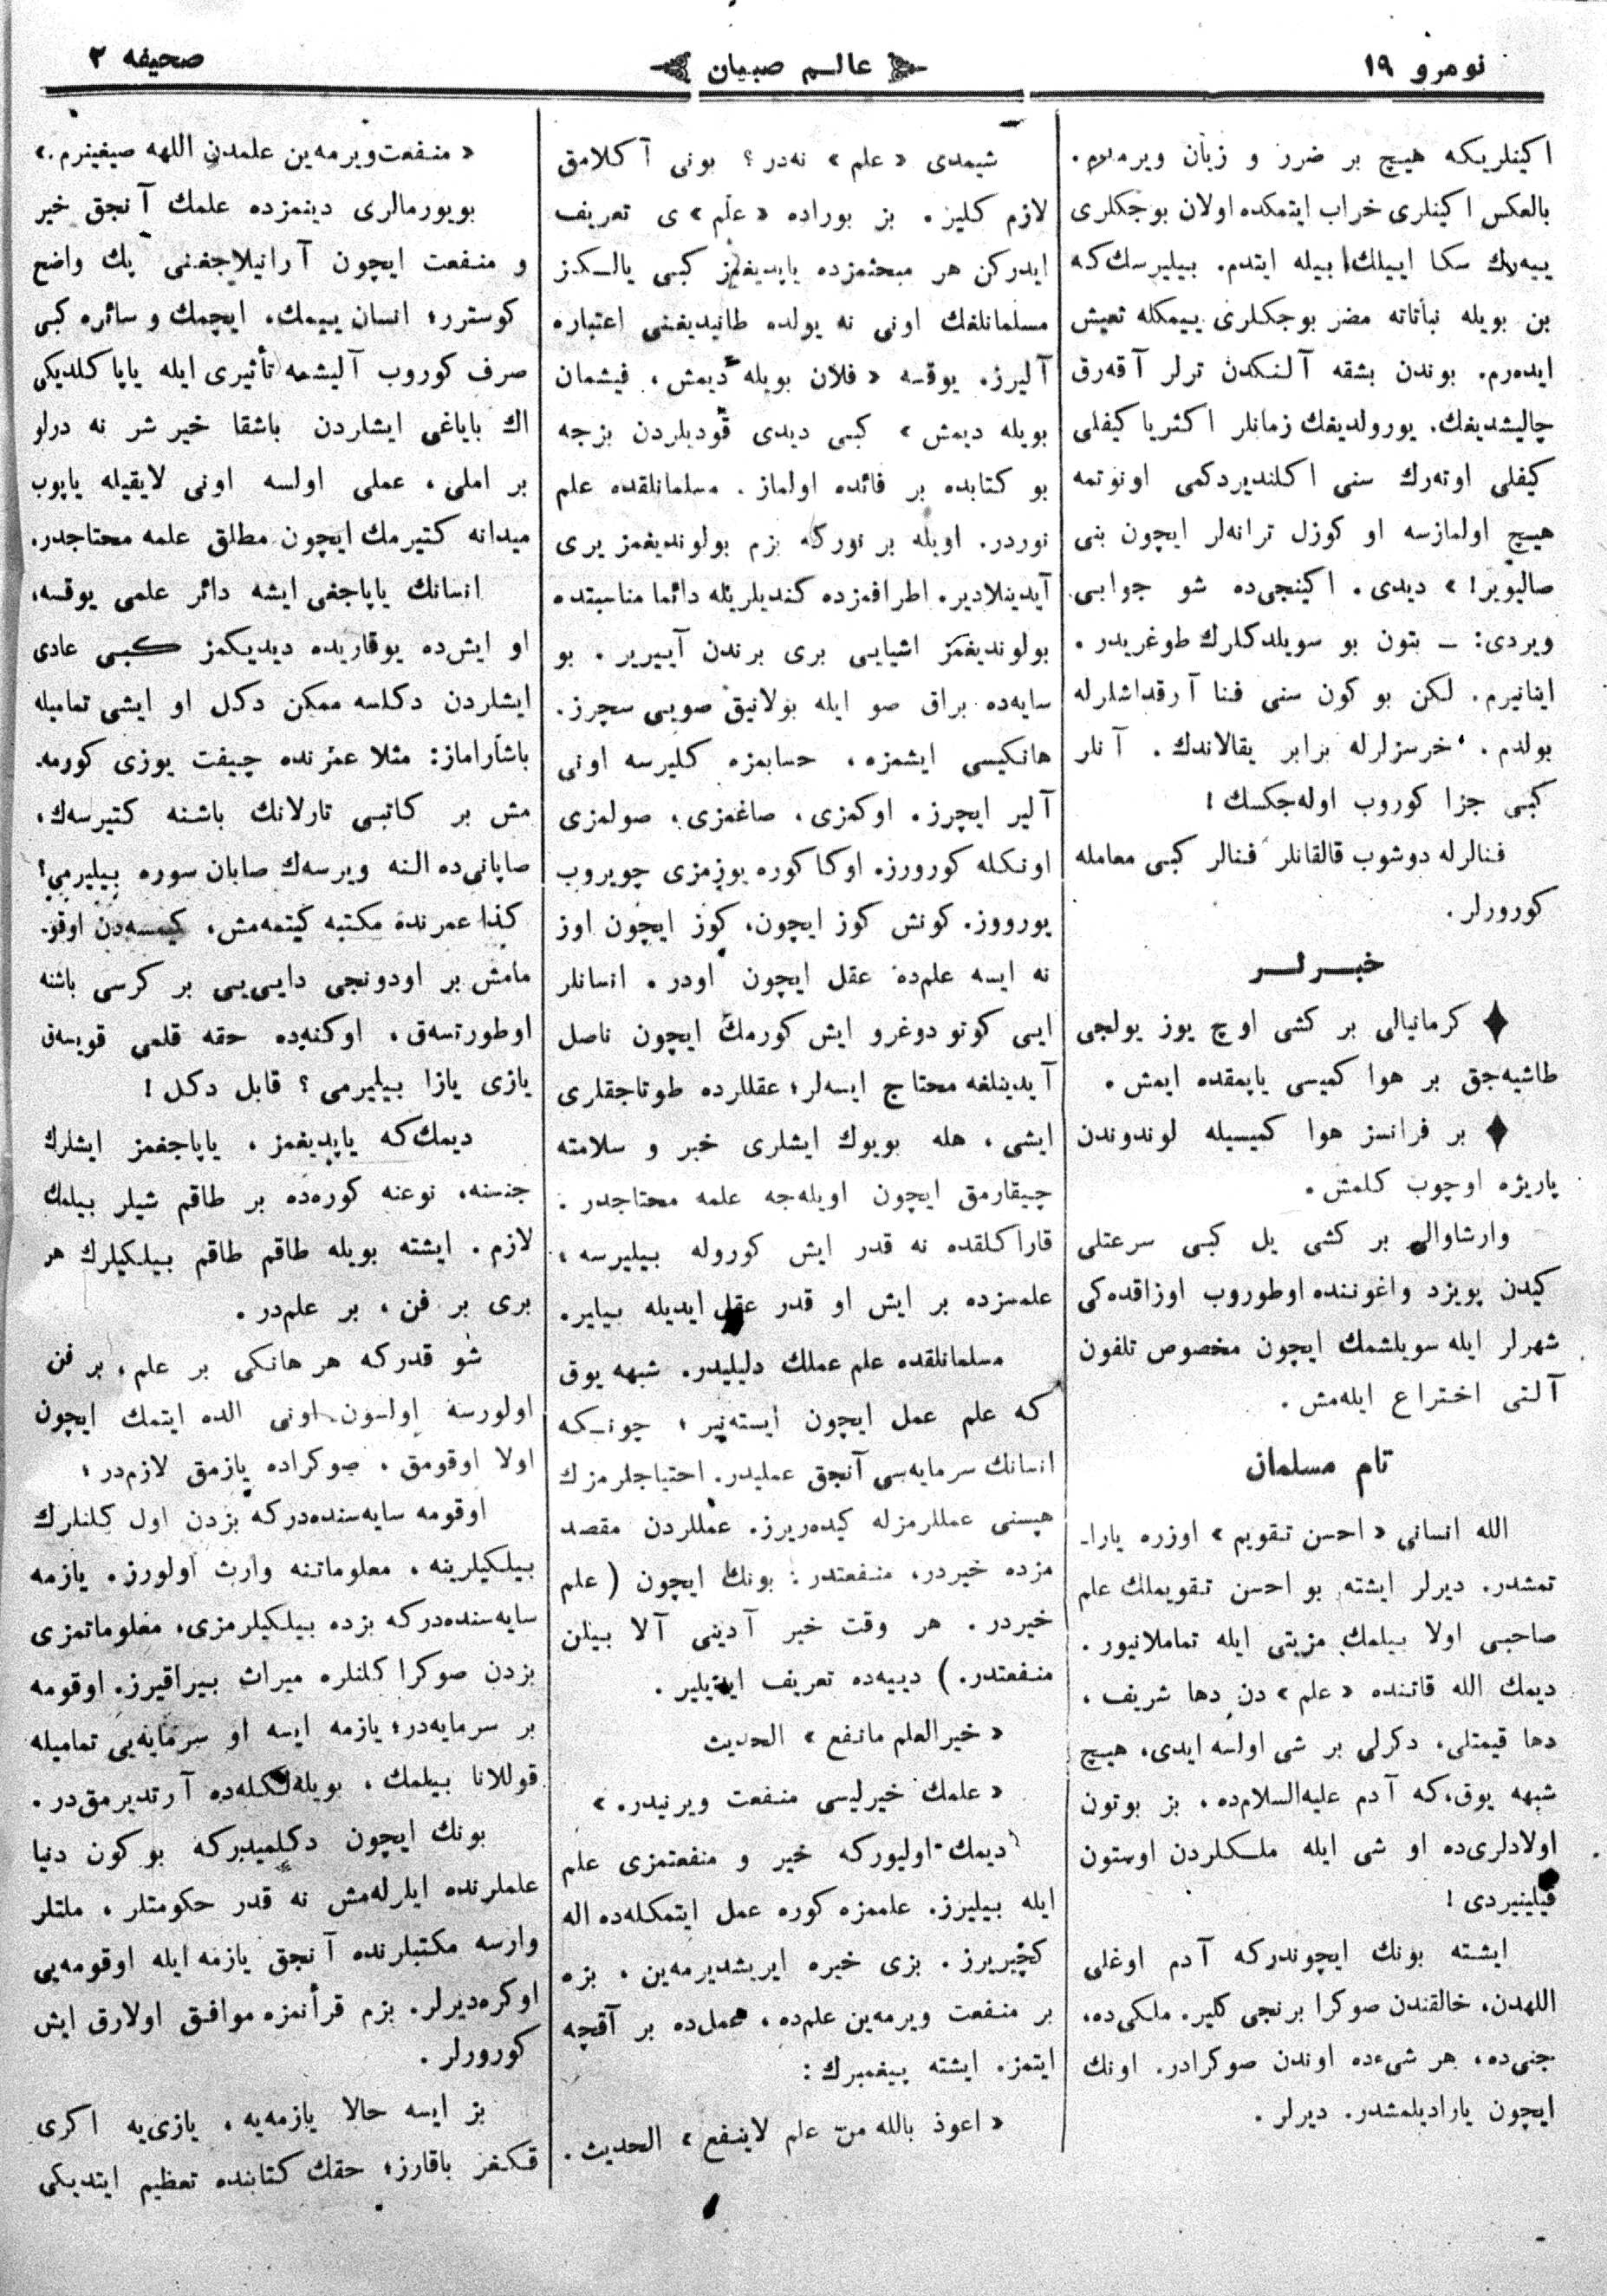 نومرو ١٩
عالم صبيان
صحيفه ٢
اكينلريكه هيچ بر ضرر و زيان ويرمدم.
بالعكس اكينلرى خراب ايتمكده اولان بوجكلرى
ييه‌رك سكا اييلك بيله ايتدم. بيليرسك كه
بن بويله نباتاته مضر بوجكلرى ييمكله تعيش
ايده‌رم. بوندن بشقه آلنكدن ترلر آقه‌رق
چاليشديغك. يورولديغك زمانلر اكثريا كيفلى
كيفلى اوته‌رك سنى اكلنديردكمى اونوتمه
هيچ اولمازسه او كوزل ترانه‌لر ايچون بنى
صاليوير! » ديدى. اكينجى‌ده شو جوابى
ويردى: ــ بتون بو سويلدكلرك طوغريدر.
اينانيرم. لكن بو كون سنى فنا آرقداشلرله
بولدم. خرسزلرله برابر يقالاندك. آنلر
كبى جزا كوروب اوله‌جكسك!
فنالرله دوشوب قالقانلر فنالر كبى معامله
كورورلر.
خبرلر
كرمانيالى بر كشى اوچ يوز يولجى
طاشيه‌جق بر هوا كميسى ياپمقده ايمش.
بر فرانسز هوا كميسيله لوندوندن
پاريژه اوچوب كلمش.
وارشاوالى بر كشى يل كبى سرعتلى
كيدن پويزد واغوننده اوطوروب اوزاقده‌كى
شهرلر ايله سويلشمك ايچون مخصوص تلفون
آلتى اختراع ايله‌مش.
تام مسلمان
الله انسانى « احسن تقويم » اوزره يارا-
تمشدر. ديرلر ايشته بو احسن تقويملك علم
صاحبى اولا بيلمك مزيتى ايله تماملانيور.
ديمك الله قاتنده « علم » دن دها شريف،
دها قيمتلى، دكرلى بر شى اولسه ايدى، هيچ
شبهه يوق، كه آدم عليه‌السلام‌ده، بز بوتون
اولادلرى‌ده او شى ايله ملكلردن اوستون
قيلينيردى!
ايشته بونك ايچوندركه آدم اوغلى
اللهدن، خالقندن صوكرا برنجى كلير. ملكى‌ده،
جنى‌ده، هر شىء‌ده اوندن صوكرادر. اونك
ايچون يارادیلمشدر. ديرلر.
شيمدى « علم » نه‌در؟ بونى آكلامق
لازم كليز. بز بوراده « علم » ى تعريف
ايدركن هر مبحثمزده ياپديغمز كبى يالكز
مسلمانلغك اونى نه يولده طانيديغنى اعتباره
آليرز. يوقسه « فلان بويله ديمش، فيشمان
بويله ديمش » كبى ديدى قوديلردن بزجه
بو كتابده بر فائده اولماز. مسلمانلقده علم
نوردر. اويله بر نوركه بزم بولونديغمز يرى
آيدينلادير. اطرافمزده كنديلريله دائما مناسبتده
بولونديغمز اشيايى برى برندن آييرير. بو
سايه‌ده براق صو ايله بولانيق صويى سچرز.
هانكيسى ايشمزه، حسابمزه كليرسه اونى
آلير ايچرز. اوكمزى، صاغمزى، صولمزى
اونكله كورورز. اوكا كوره يوزمزى چويروب
يورورز. كونش كوز ايچون، كوز ايچون اوز
نه ايسه علم‌ده عقل ايچون اودر. انسانلر
ايى كوتو دوغرو ايش كورمك ايچون ناصل
آيدينلغه محتاج ايسه‌لر؛ عقللرده طوتاجقلرى
ايشى، هله بويوك ايشلرى خبر و سلامته
چيقارمق ايچون اويله‌جه علمه محتاجدر.
قاراكلقده نه قدر ايش كوروله بيليرسه،
علمسزده بر ايش او قدر عقل ايديله بيلير.
مسلمانلقده علم عملك دليليدر. شبهه يوق
كه علم عمل ايچون ايسته‌نير؛ چونكه
انسانك سرمايه‌سى آنجق عمليدر. احتياجلرمزك
هپسنى عمللرمزله كيده‌ريرز. عمللردن مقصد
مزده خيردر، منفعتدر: بونك ايچون ( علم
خيردر. هر وقت خير آدينى آلا بيلن
منفعتدر. ) دييه‌ده تعريف ايديلير.
« خيرالعلم مانفع » الحديث
« علمك خيرليسى منفعت ويرنيدر. »
ديمك اوليوركه خير و منفعتمزى علم
ايله بيليرز. علممزه كوره عمل ايتمكله‌ده اله
كچيريرز. بزى خيره ايريشديرمه‌ين، بزه
بر منفعت ويرمه‌ين علم‌ده، عمل‌ده بر آقچه
ايتمز. ايشته پيغمبرك:
« اعوذ بالله من علم لاينفع » الحديث.
« منفعت ويرمه‌ين علمدن اللهه صيغينرم. »
بويورمالرى دينمزده علمك آنجق خير
و منفعت ايچون آرانيلاجغنى پك واضح
كوسترر؛ انسان ييمك، ايچمك و سائره كبى
صرف كوروب آليشمه تأثيرى ايله ياپا كلديكى
اك باياغى ايشاردن باشقا خير شر نه درلو
بر املى، عملى اولسه اونى لايقيله ياپوب
ميدانه كتيرمك ايچون مطلق علمه محتاجدر.
انسانك ياپاجغى ايشه دائر علمى يوقسه،
او ايش‌ده يوقاريده ديديكمز كبى عادى
ايشلردن دكلسه ممكن دكل او ايشى تماميله
باشاراماز: مثلا عمرنده چيفت يوزى كورمه-
مش بر كاتبى تارلانك باشنه كتيرسه‌ك،
صاپانى‌ده النه ويرسه‌ك صابان سوره بيليرمي؟
كذا عمرنده مكتبه كيتمه‌مش، كيمسه‌دن اوقو-
مامش بر اودونجى دايى‌يى بر كرسى باشنه
اوطورتسه‌ق، اوكنه‌ده حقه قلمى قويسه‌ق
يازى يازا بيليرمى؟ قابل دكل!
ديمك كه ياپديغمز، ياپاجغمز ايشلرك
جنسنه، نوعنه كوره‌ده بر طاقم شيلر بيلمك
لازم. ايشته بويله طاقم طاقم بيلكيلرك هر
برى بر فن، بر علم‌در.
شو قدركه هر هانكى بر علم، بر فن
اولورسه اولسون اونى الده ايتمك ايچون
اولا اوقومق، صوكراده يازمق لازم‌در؛
اوقومه سايه‌سنده‌دركه بزدن اول كلنلرك
بيلكيلرينه، معلوماتنه وارث اولورز. يازمه
سايه‌سنده‌دركه بزده بيلكيلرمزى، معلوماتمزى
بزدن صوكرا كلنلره ميراث بيراقيرز. اوقومه
بر سرمايه‌در؛ يازمه ايسه او سرمايه‌يى تماميله
قوللانا بيلمك، بويله‌لكله‌ده آرتديرمق‌در.
بونك ايچون دكلميدركه بو كون دنيا
علملرنده ايلرله‌مش نه قدر حكومتلر، ملتلر
وارسه مكتبلرنده آنجق يازمه ايله اوقومه‌يى
اوكره‌ديرلر. بزم قرأنمزه موافق اولارق ايش
كورورلر.
بز ايسه حالا يازمه‌يه، يازى‌يه اكرى
باقارز؛ حقك كتابنده تعظيم ايتديكى